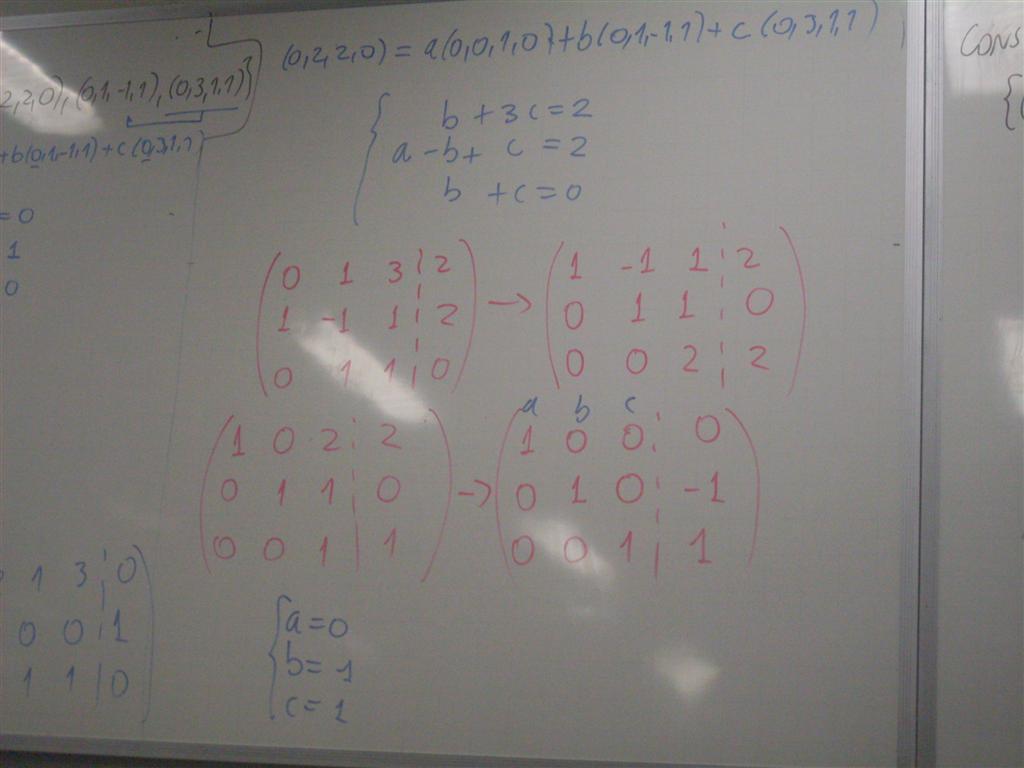 2,2,0), (0,1,-1,1), (0,3,1,1)}
+b(0,1,-1,1)+c(0,3,1,1)
=0
1
0
(0,2,2,0) = a(0,0,1,0)+b(0,1,-1,1)+c(0,3,1,1)
b+3c=2
a-b+c=2
b+c=0
0 1 3 | 2 → 1 -1 1 | 2
1 -1 1 | 2 0 1 1 | 0
0 1 1 | 0 0 0 2 | 2
a b c
1 0 2 | 2 → 1 0 0 | 0
0 1 1 | 0 0 1 0 | -1
0 0 1 | 1 0 0 1 | 1
1 3 | 0
0 0 | 1
1 1 | 0
a=0
b=-1
c=1
CONS
{(